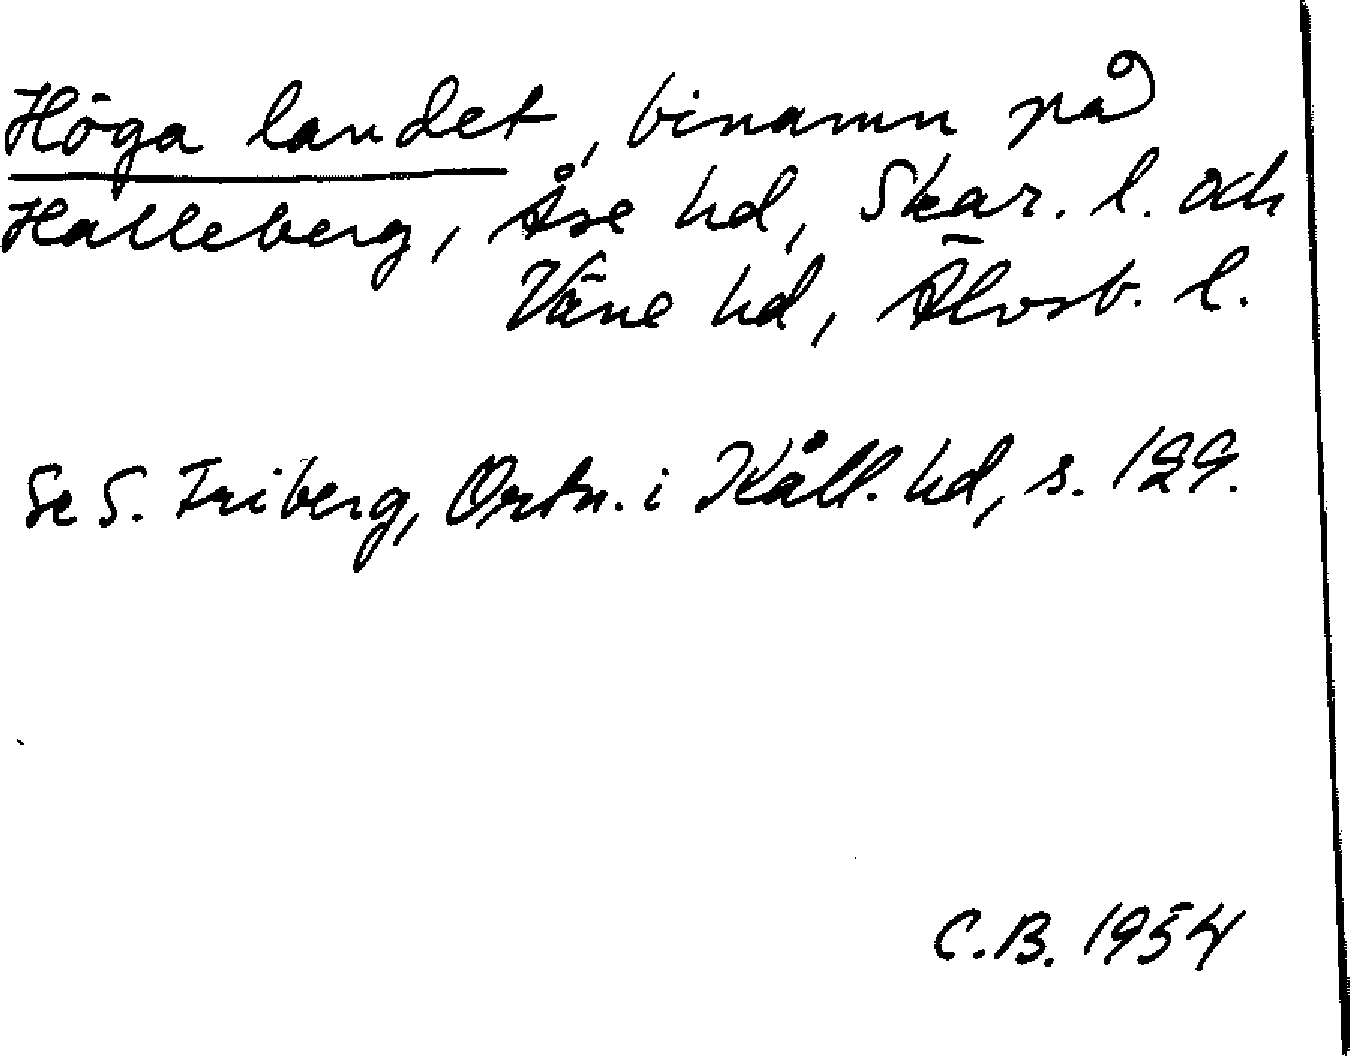 Höga landet, binamn på
Halleberg, Åse hd, Skar. l. och
Väne hd, Älvsb. l.
Se S. Friberg, Ortn. i Kåll. hd, s. 129.
C.B. 1954